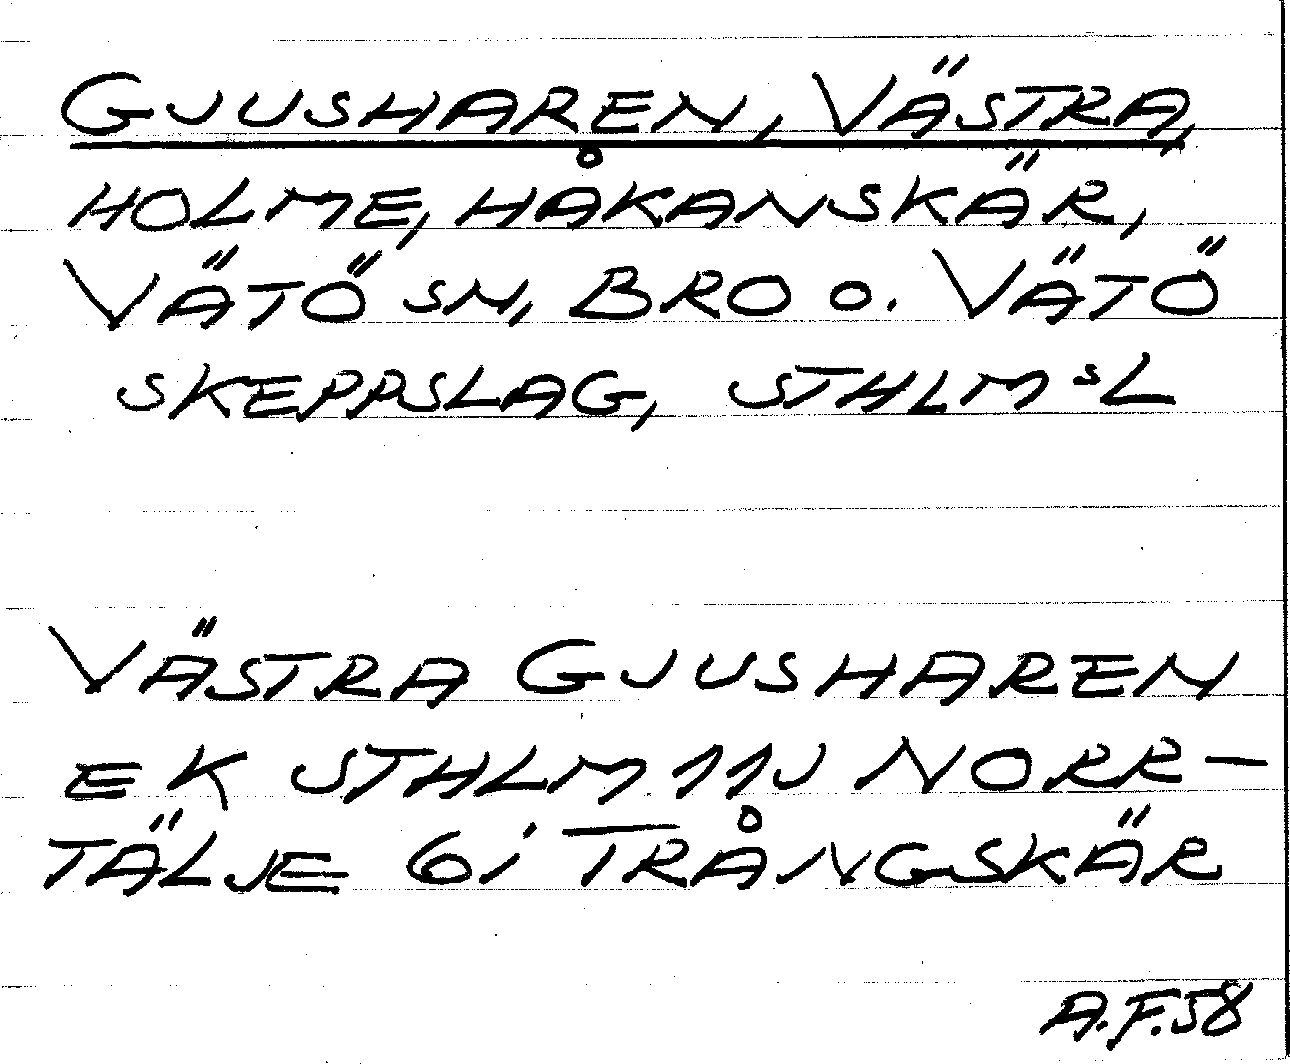 GJUSHAREN, VÄSTRA,
HOLME, HÅKANSKÄR,
VÄTÖ SN, BRO O. VÄTÖ
SKEPPSLAG, STHLMSL
VÄSTRA GJUSHAREN
EK STHLM 11J NORR-
TÄLJE 6i TRÅNGSKÄR
A.F.58